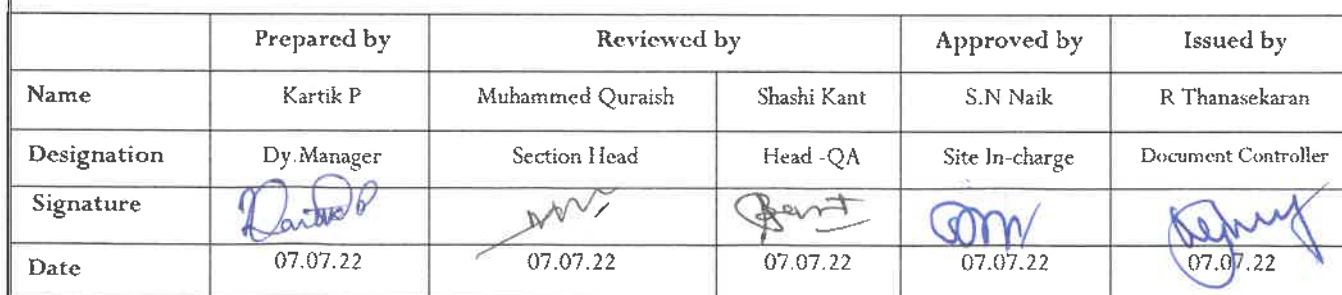 Prepared by Reviewed by Approved by Issued by
Name Kartik P Muhammed Quraish Shashi Kant S.N Naik R Thanasekaran
Designation Dy.Manager Section Head Head -QA Site In-charge Document Controller
Signature Kartik P Kant
Date 07.07.22 07.07.22 07.07.22 07.07.22 07.07.22